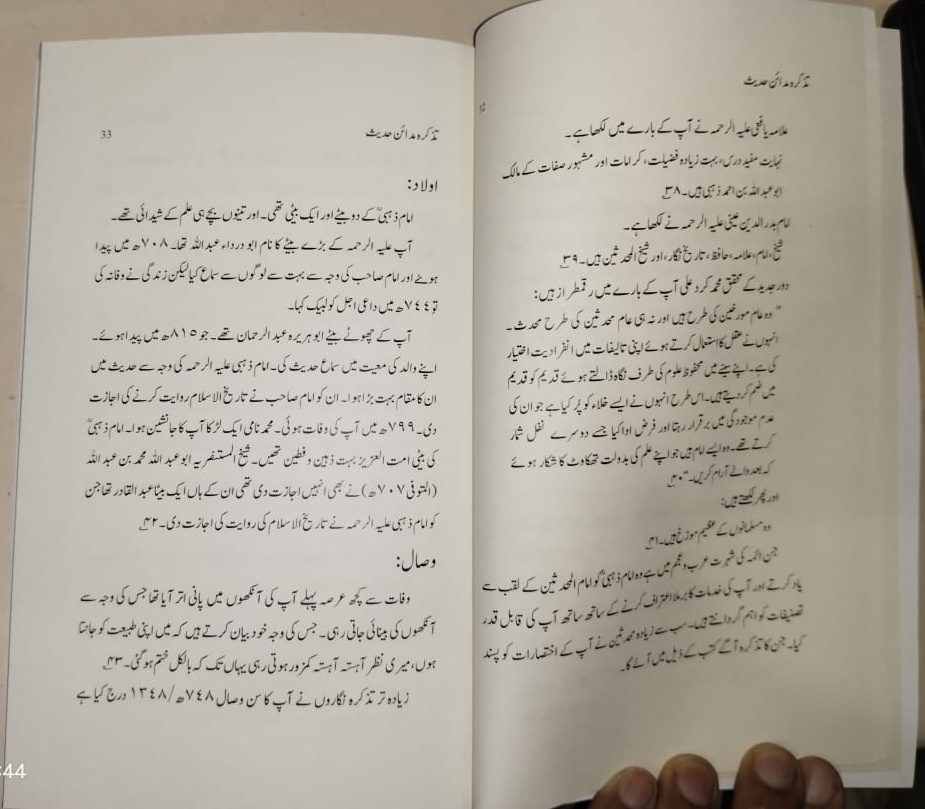 تذکرہ مدائن حدیث
32
علامہ یافعی علیہ الرحمہ نے آپ کے بارے میں لکھا ہے۔
نہایت مفید درس، بہت زیادہ فضیلت، کرامات اور مشہور صفات کے مالک
ابو عبد اللہ بن احمد ذہبی ہیں۔ ۳۸؎
امام بدر الدین عینی علیہ الرحمہ نے لکھا ہے۔
شیخ، امام، علامہ، حافظ، تاریخ نگار، اور شیخ المحدثین ہیں۔ ۳۹؎
دور جدید کے محقق محمد کرد علی آپ کے بارے میں رقمطراز ہیں:
"وہ عام مورخین کی طرح ہیں اور نہ ہی عام محدثین کی طرح محدث۔
انہوں نے عقل کا استعمال کرتے ہوئے اپنی تالیفات میں انفرادیت اختیار
کی ہے۔ اپنے سینے میں محفوظ علوم کی طرف نگاہ ڈالتے ہوئے قدیم کو قدیم
میں ضم کر دیتے ہیں۔ اس طرح انہوں نے ایسے خلاء کو پُر کیا ہے جو ان کی
عدم موجودگی میں برقرار رہتا اور فرض ادا کیا جسے دوسرے نفل شمار
کرتے تھے۔ وہ ایسے امام ہیں جو اپنے علم کی بدولت تھکاوٹ کا شکار ہوئے
کہ بعد والے آرام کریں۔" ۴۰؎
اور پھر لکھتے ہیں:
وہ مسلمانوں کے عظیم مورّخ ہیں۔ ۴۱؎
جن ائمہ کی شہرت عرب و عجم میں ہے وہ امام ذہبیؒ کو امام المحدثین کے لقب سے
یاد کرتے اور آپ کی خدمات کا برملا اعتراف کرنے کے ساتھ ساتھ آپ کی قابل قدر
تصنیفات کو اہم گردانتے ہیں۔ سب سے زیادہ محدثین نے آپ کے اختصارات کو پسند
کیا۔ جن کا تذکرہ آگے کتب کے ذیل میں آئے گا۔
تذکرہ مدائن حدیث
33
اولاد:
امام ذہبیؒ کے دو بیٹے اور ایک بیٹی تھی۔ اور تینوں بچے ہی علم کے شیدائی تھے۔
آپ علیہ الرحمہ کے بڑے بیٹے کا نام ابو درداء عبد اللہ تھا۔ ۷۰۸ھ میں پیدا
ہوئے اور امام صاحب کی وجہ سے بہت سے لوگوں سے سماع کیا لیکن زندگی نے وفا نہ کی
تو ۷۴۴ھ میں داعی اجل کو لبیک کہا۔
آپ کے چھوٹے بیٹے ابو ہریرہ عبد الرحمان تھے۔ جو ۸۱۵ھ میں پیدا ہوئے۔
اپنے والد کی معیت میں سماع حدیث کی۔ امام ذہبی علیہ الرحمہ کی وجہ سے حدیث میں
ان کا مقام بہت بڑا ہوا۔ ان کو امام صاحب نے تاریخ الاسلام روایت کرنے کی اجازت
دی۔ ۷۹۹ھ میں آپ کی وفات ہوئی۔ محمد نامی ایک لڑکا آپ کا جانشین ہوا۔ امام ذہبیؒ
کی بیٹی امت العزیز بہت ذہین و فطین تھیں۔ شیخ المستنصریہ ابو عبد اللہ محمد بن عبد اللہ
(المتوفی ۷۰۷ھ) نے بھی انہیں اجازت دی تھی ان کے ہاں ایک بیٹا عبد القادر تھا جن
کو امام ذہبی علیہ الرحمہ نے تاریخ الاسلام کی روایت کی اجازت دی۔ ۴۲؎
وصال:
وفات سے کچھ عرصہ پہلے آپ کی آنکھوں میں پانی اتر آیا تھا جس کی وجہ سے
آنکھوں کی بینائی جاتی رہی۔ جس کی وجہ خود بیان کرتے ہیں کہ میں اپنی طبیعت کو جانتا
ہوں، میری نظر آہستہ آہستہ کمزور ہوتی رہی یہاں تک کہ بالکل ختم ہو گئی۔ ۴۳؎
زیادہ تر تذکرہ نگاروں نے آپ کا سن وصال ۷۴۸ھ/۱۳۴۸ درج کیا ہے
:44